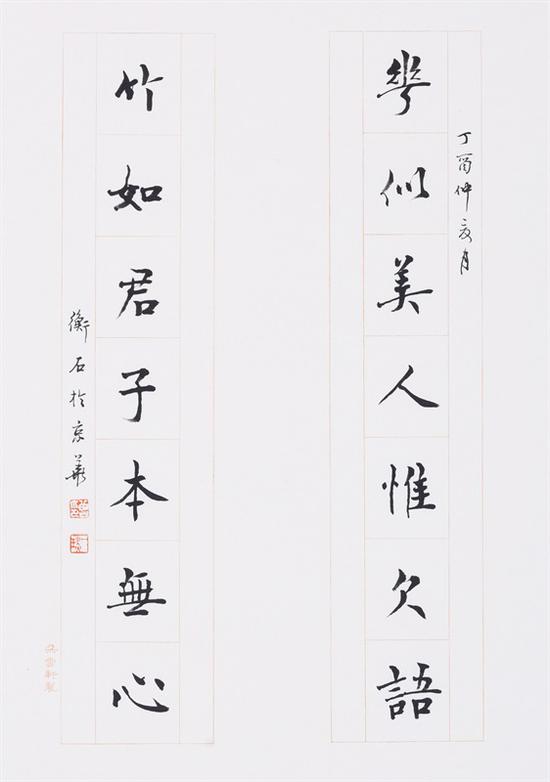 丁酉仲夏月
華似美人惟欠語
竹如君子本無心
衡石於京華
朵雲軒製